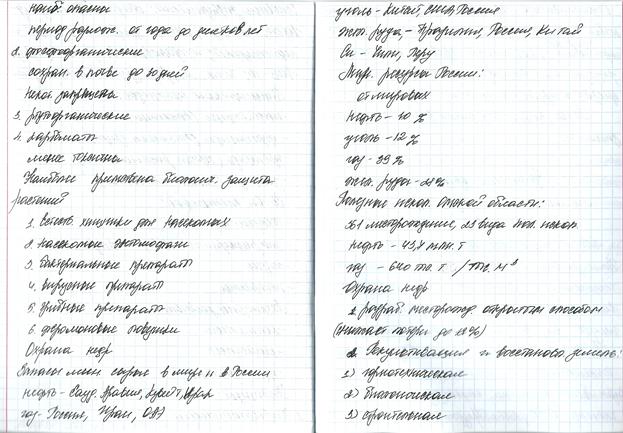 наиб. опасны
период разлож. от года до десятков лет
2. фосфорорганические
сохран. в почве до 30 дней
Некот. запрещены
3. ртутьорганические
4. карбаматы
менее токсичны
Наиболее приемлема биологич. защита
растений
1. естеств. хищники для насекомых
2. насекомые энтомофаги
3. бактериальные препараты
4. вирусные препараты
5. грибные препараты
6. феромоновые ловушки
Охрана недр
Запасы мин. сырья в мире и в России:
нефть - Сауд. Аравия, Кувейт, Ирак
газ - Россия, Иран, ОАЭ
уголь - Китай, США, Россия
жел. руда - Бразилия, Россия, Китай
Cu - Чили, Перу
Мин. ресурсы России:
от мировых
Нефть - 10 %
уголь - 12 %
газ - 33 %
жел. руда - 21 %
Полезные ископ. области:
361 месторождение, 23 вида пол. ископ.
нефть - 43,4 млн. т
газ - 640
Охрана недр
1. разраб. месторожд. открытым способом
(снижает потери до 12 %)
2. Рекультивация и восстановл. земель:
1) горнотехническая
2) биологическая
3) строительная